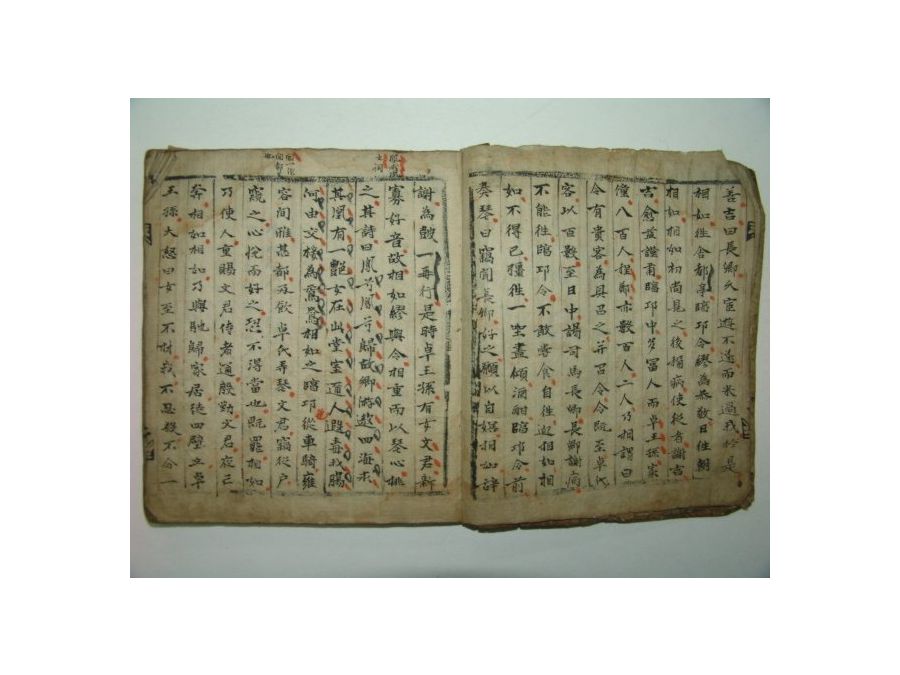 善吉曰長卿久宦遊不遂而來過我於是
相如往舍都亭臨邛令繆為恭敬日往朝
相如相如初尚見之後稱病使從者謝吉
吉愈益謹肅臨邛中多富人而卓王孫家
僮八百人程鄭亦數百人二人乃相謂曰
令有貴客為具召之并召令令既至卓氏
客以百數至日中謁司馬長卿長卿謝病
不能往臨邛令不敢嘗食自往迎相如相
如不得已彊往一坐盡傾酒酣臨邛令前
奏琴曰竊聞長卿好之願以自娛相如辭
謝為鼓一再行是時卓王孫有女文君新
寡好音故相如繆與令相重而以琴心挑
之其詩曰鳳兮鳳兮歸故鄉游遨四海求
其凰有一艶女在此堂室邇人遐毒我腸
何由交接為鴛鴦相如之臨邛從車騎雍
容間雅甚都及飲卓氏弄琴文君竊從戶
窺之心悅而好之恐不得當也既罷相如
乃使人重賜文君侍者通殷勤文君夜亡
奔相如相如乃與馳歸家居徒四壁立卓
王孫大怒曰女至不材我不忍殺不分一